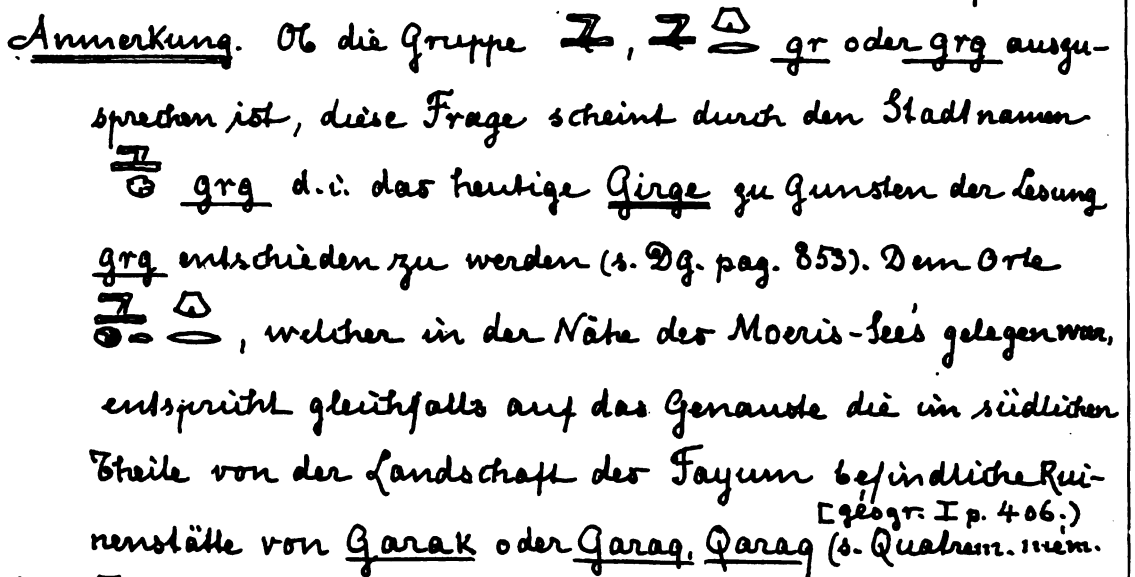 Anmerkung. Ob die Gruppe , gr oder grg auszu-
sprechen ist, diese Frage scheint durch den Stadtnamen
grg d.i. das heutige Girge zu Gunsten der Lesung
grg entschieden zu werden (s. DG. pag. 853). Dem Orte
, welcher in der Nähe des Moeris-See's gelegen war,
entspricht gleichfalls auf das Genauste die im südlichen
Theile von der Landschaft des Fayum befindliche Rui-
[géogr. I p. 406.)
nenstätte von Garak oder Garaq, Qaraq (s. Quatrem. mém.